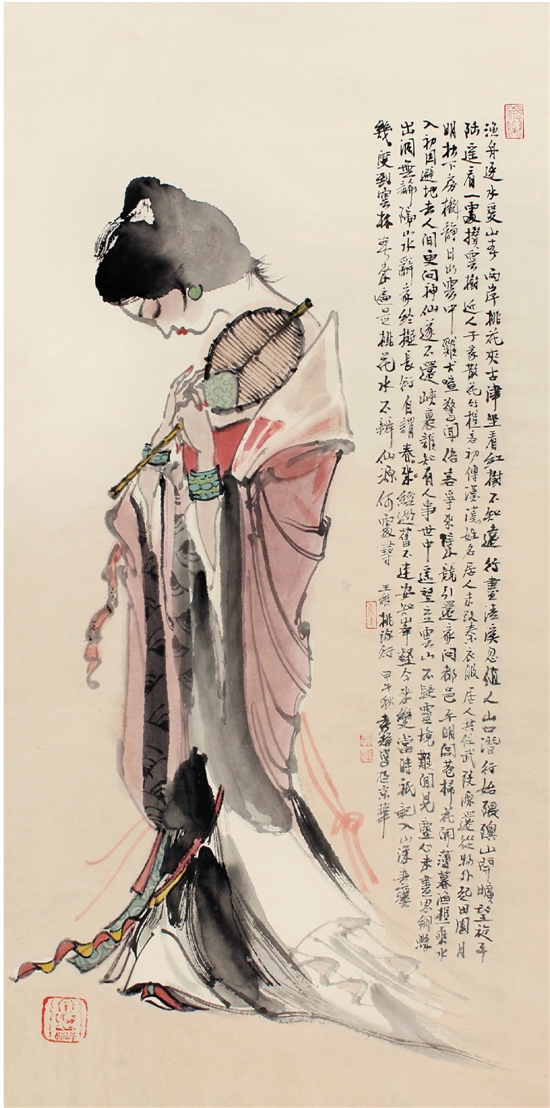 漁舟逐水愛山春 兩岸桃花夾古津 坐看紅樹不知遠 行盡清溪忽值人 山口潛行始隈隩 山開曠望旋平
陸 遥看一處攢雲樹 近入千家散花竹 樵客初傳漢姓名 居人未改秦衣服 居人共住武陵源 還從物外起田園 月
明松下房櫳靜 日出雲中雞犬喧 驚聞俗客爭來集 競引還家問都邑 平明閭巷掃花開 薄暮漁樵乘水
入 初因避地去人間 更問神仙遂不還 峽裏誰知有人事 世中遥望空雲山 不疑靈境難聞見 塵心未盡思鄉縣
出洞無論隔山水 辭家終擬長游衍 自謂春來經過舊不迷 安知峰壑今來變 當時祇記入山深 青溪
幾度到雲林 春來遍是桃花水 不辨仙源何處尋 王維桃源行 甲午秋 寫於京華